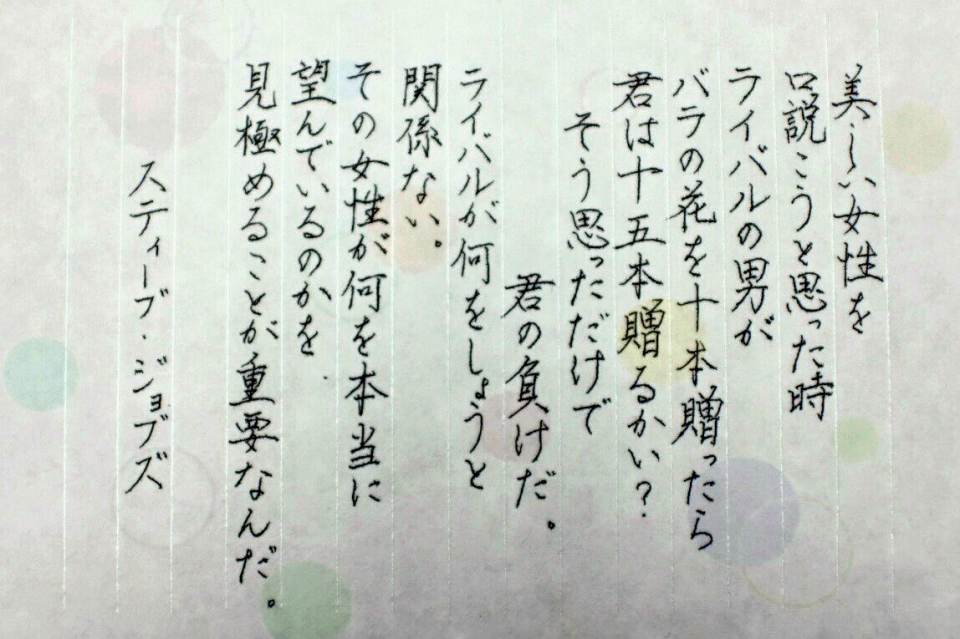 美しい女性を
口説こうと思った時
ライバルの男が
バラの花を十本贈ったら
君は十五本贈るかい？
そう思っただけで
君の負けだ。
ライバルが何をしようと
関係ない。
その女性が何を本当に
望んでいるのかを
見極めることが重要なんだ。
スティーブ・ジョブズ